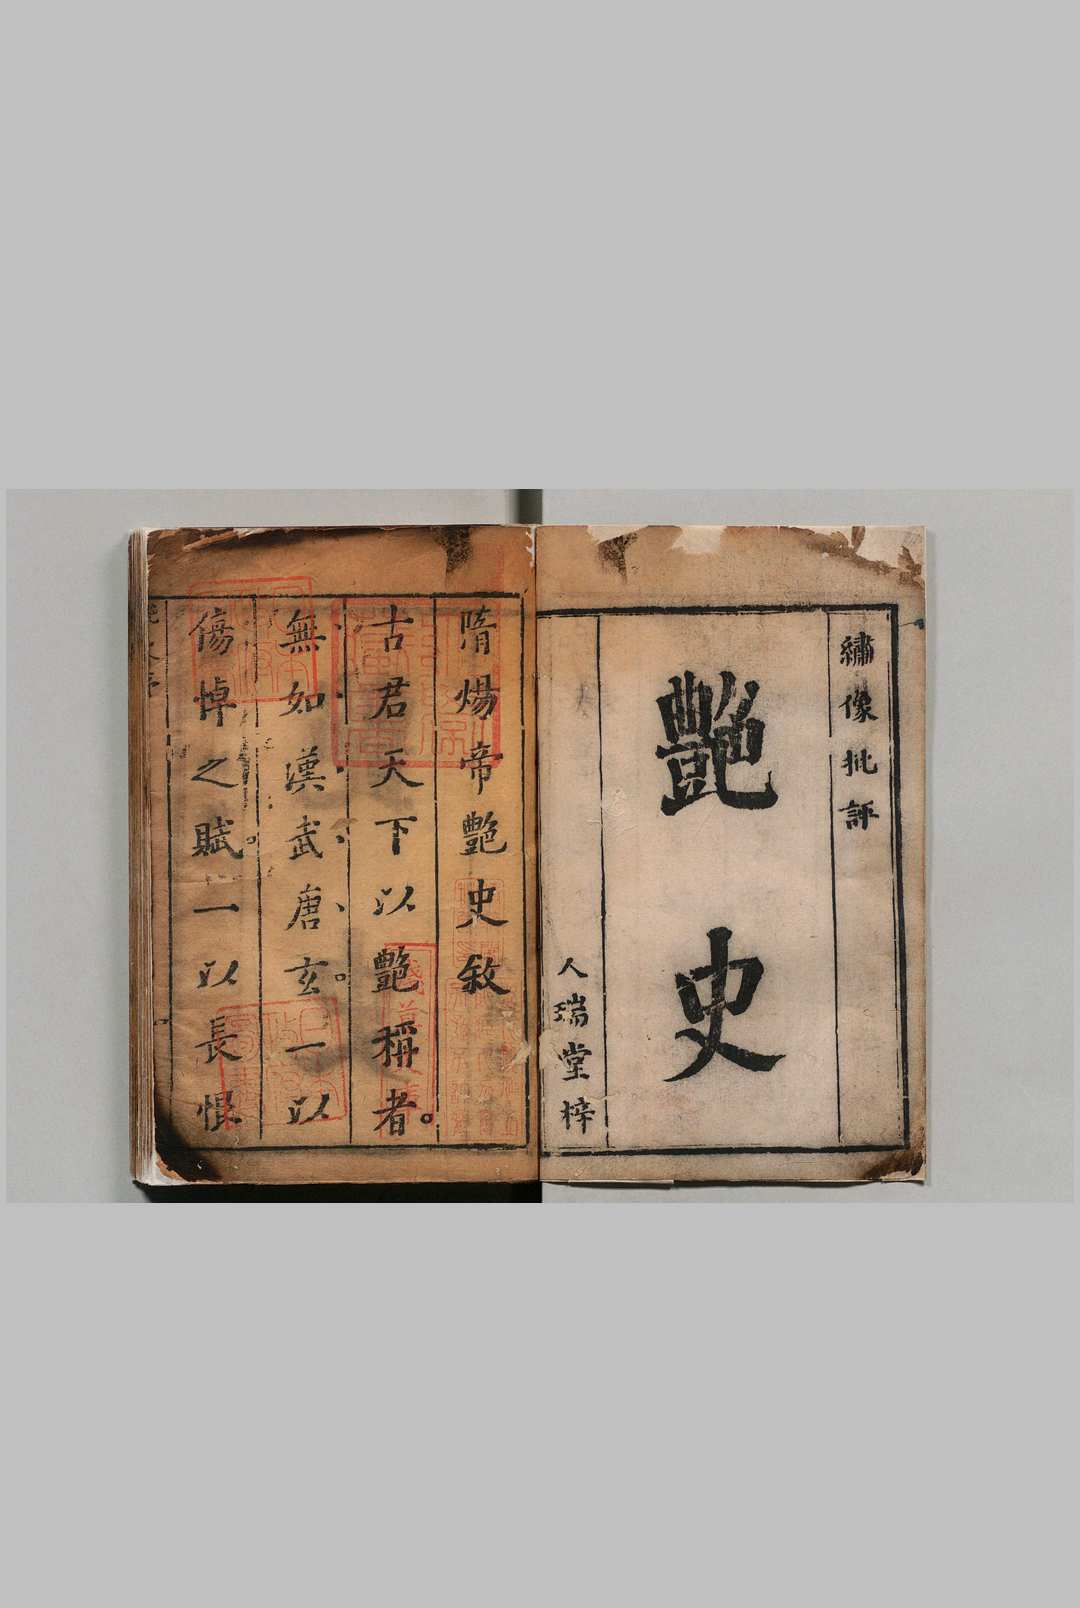 繡像批評
艷史
人瑞堂梓
隋煬帝艷史敘
古君天下以艷稱者。
無如漢武唐玄。一以
傷悼之賦。一以長恨